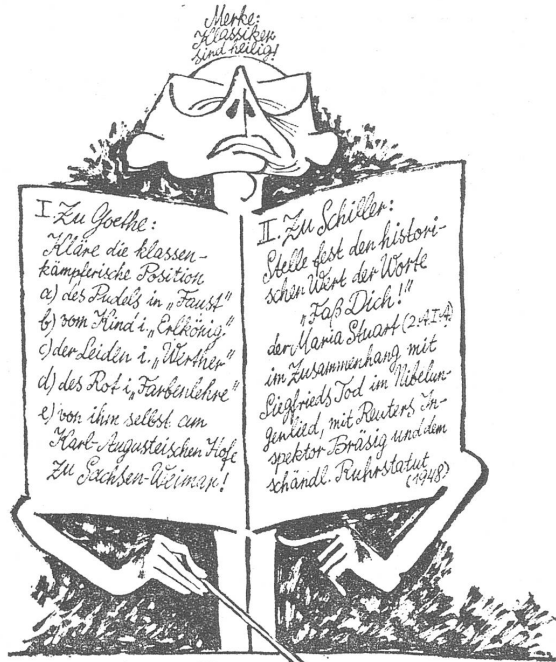 Merke:
Klassiker
sind heilig!
I. Zu Goethe:
Kläre die klassen-
kämpferische Position
a) des Pudels in „Faust"
b) vom Kind i. „Erlkönig"
c) der Leiden i. „Werther"
d) des Rot i. „Farbenlehre"
e) von ihm selbst am
Karl-Augusteischen Hofe
zu Sachsen-Weimar!
II. Zu Schiller:
Stelle fest den histori-
schen Wert der Worte
„Faß Dich!"
der Maria Stuart (2. A. I. A)
im Zusammenhang mit
Siegfrieds Tod im Nibelun-
genlied, mit Reuters In-
spektor Bräsig und dem
schändl. Ruhrstatut
(1948)